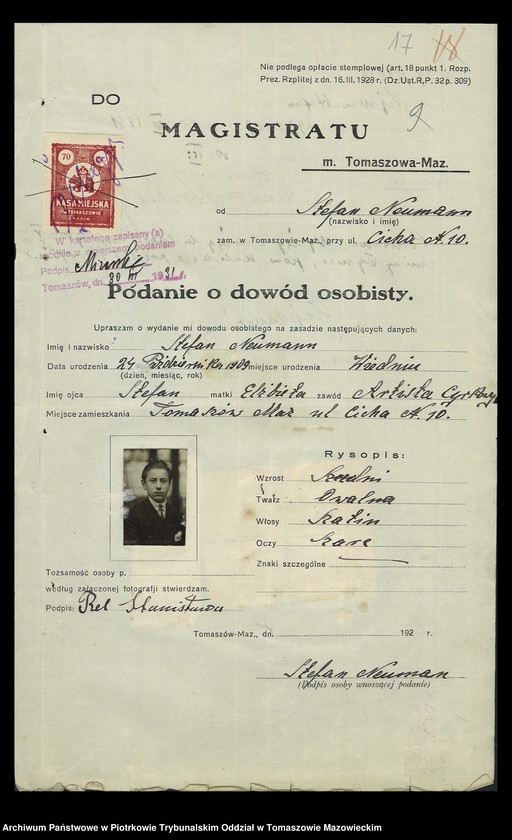 17 18
Nie podlega opłacie stemplowej (art. 18 punkt 1. Rozp.
Prez. Rzplitej z dn. 16. III. 1928 r. (Dz.Ust.R,P. 32 p. 309)
DO
9
MAGISTRATU
m. Tomaszowa-Maz.
70
KASA MIEJSKA
W TOMASZOWIE
od Stefan Neumann
(nazwisko i imię)
zam. w Tomaszowie-Maz. przy ul. Cicha N. 10.
W kartotece zapisany (a)
zgodnie z niniejszem podaniem
Podpis
Tomaszów, dn. 30 III 1931 r.
Podanie o dowód osobisty.
Upraszam o wydanie mi dowodu osobistego na zasadzie następujących danych:
Imię i nazwisko Stefan Neumann
Data urodzenia 24 Październiku 1909 miejsce urodzenia Wiedniu
(dzień, miesiąc, rok)
Imię ojca Stefan matki Elżbieta zawód Artista Cyrkowy
Miejsce zamieszkania Tomaszów Maz ul Cicha N. 10.
Rysopis:
Wzrost Średni
Twarz Owalna
Włosy Szatin
Oczy Szare
Znaki szczególne
Tożsamość osoby p.
według załączonej fotografji stwierdzam.
Podpis: Stanisława
Tomaszów-Maz., dn. 192 r.
Stefan Neuman
(Podpis osoby wnoszącej podanie)
Archiwum Państwowe w Piotrkowie Trybunalskim Oddział w Tomaszowie Mazowieckim